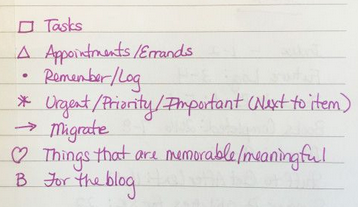 □ Tasks
△ Appointments/Errands
• Remember/Log
* Urgent/Priority/Important (Next to item)
→ Migrate
♡ Things that are memorable/meaningful
B For the blog